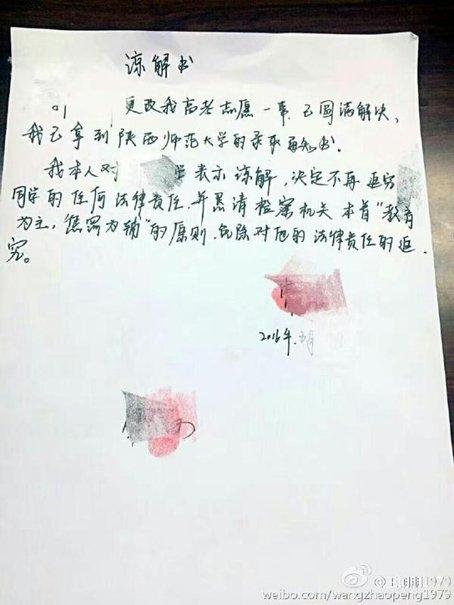 谅解书
更改我高考志愿一事,已圆满解决,
我已拿到陕西师范大学的录取通知书.
我本人对 表示谅解,决定不再追究
同学的任何法律责任.并恳请检察机关本着"教育
为主,惩罚为辅"的原则,免除对他的法律责任的追
究。
2016年.
weibo.com/wangzhaopeng1979